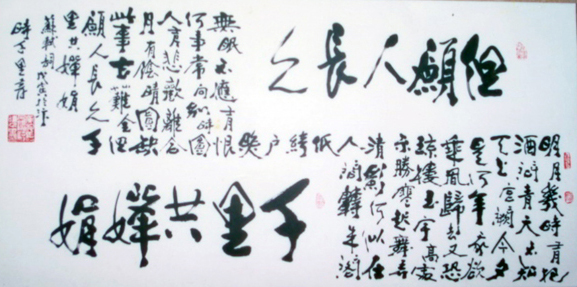 但願人長久
千里共嬋娟
明月幾時有把
酒問青天不知
天上宮闕今夕
是何年我欲
乘風歸去又恐
瓊樓玉宇高處
不勝寒起舞弄
清影何似在
人間轉朱閣
低綺戶照
無眠不應有恨
何事常向別時圓
人有悲歡離合
月有陰晴圓缺
此事古難全但
願人長久千
里共嬋娟
蘇軾詞